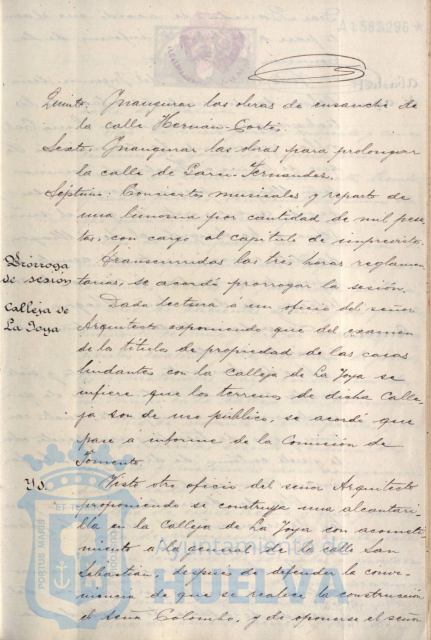 A 1.583.296 *
Quinto: Inaugurar las obras de ensanche de
la calle Hernán-Cortés.
Sexto. Inaugurar las obras para prolongar
la calle de Garci-Fernandez.
Séptimo: Conciertos musicales y reparto de
una limosna por cantidad de mil pese
tas, con cargo al capítulo de imprevistos.
Prórroga
de sesión
Transcurridas las tres horas reglamen
tarias, se acordó prorrogar la sesión.
Calleja de
La Joya
Dada lectura á un oficio del señor
Arquitecto exponiendo que del examen
de la títulos de propiedad de las casas
lindantes con la Calleja de La Joya se
infiere que los terrenos de dicha Calle-
ja son de uso público, se acordó que
pase á informe de la Comisión de
Fomento.
Yd.
Visto otro oficio del señor Arquitecto
proponiendo se construya una alcantari-
lla en la Calleja de La Joya con acometi-
miento a la general de la calle San
Sebastián, después de defender la conve-
niencia de que se realice la construcción
el señor Colombo, y de oponerse el señor
PORTUS MARIS ET
Ayuntamiento de
HUELVA